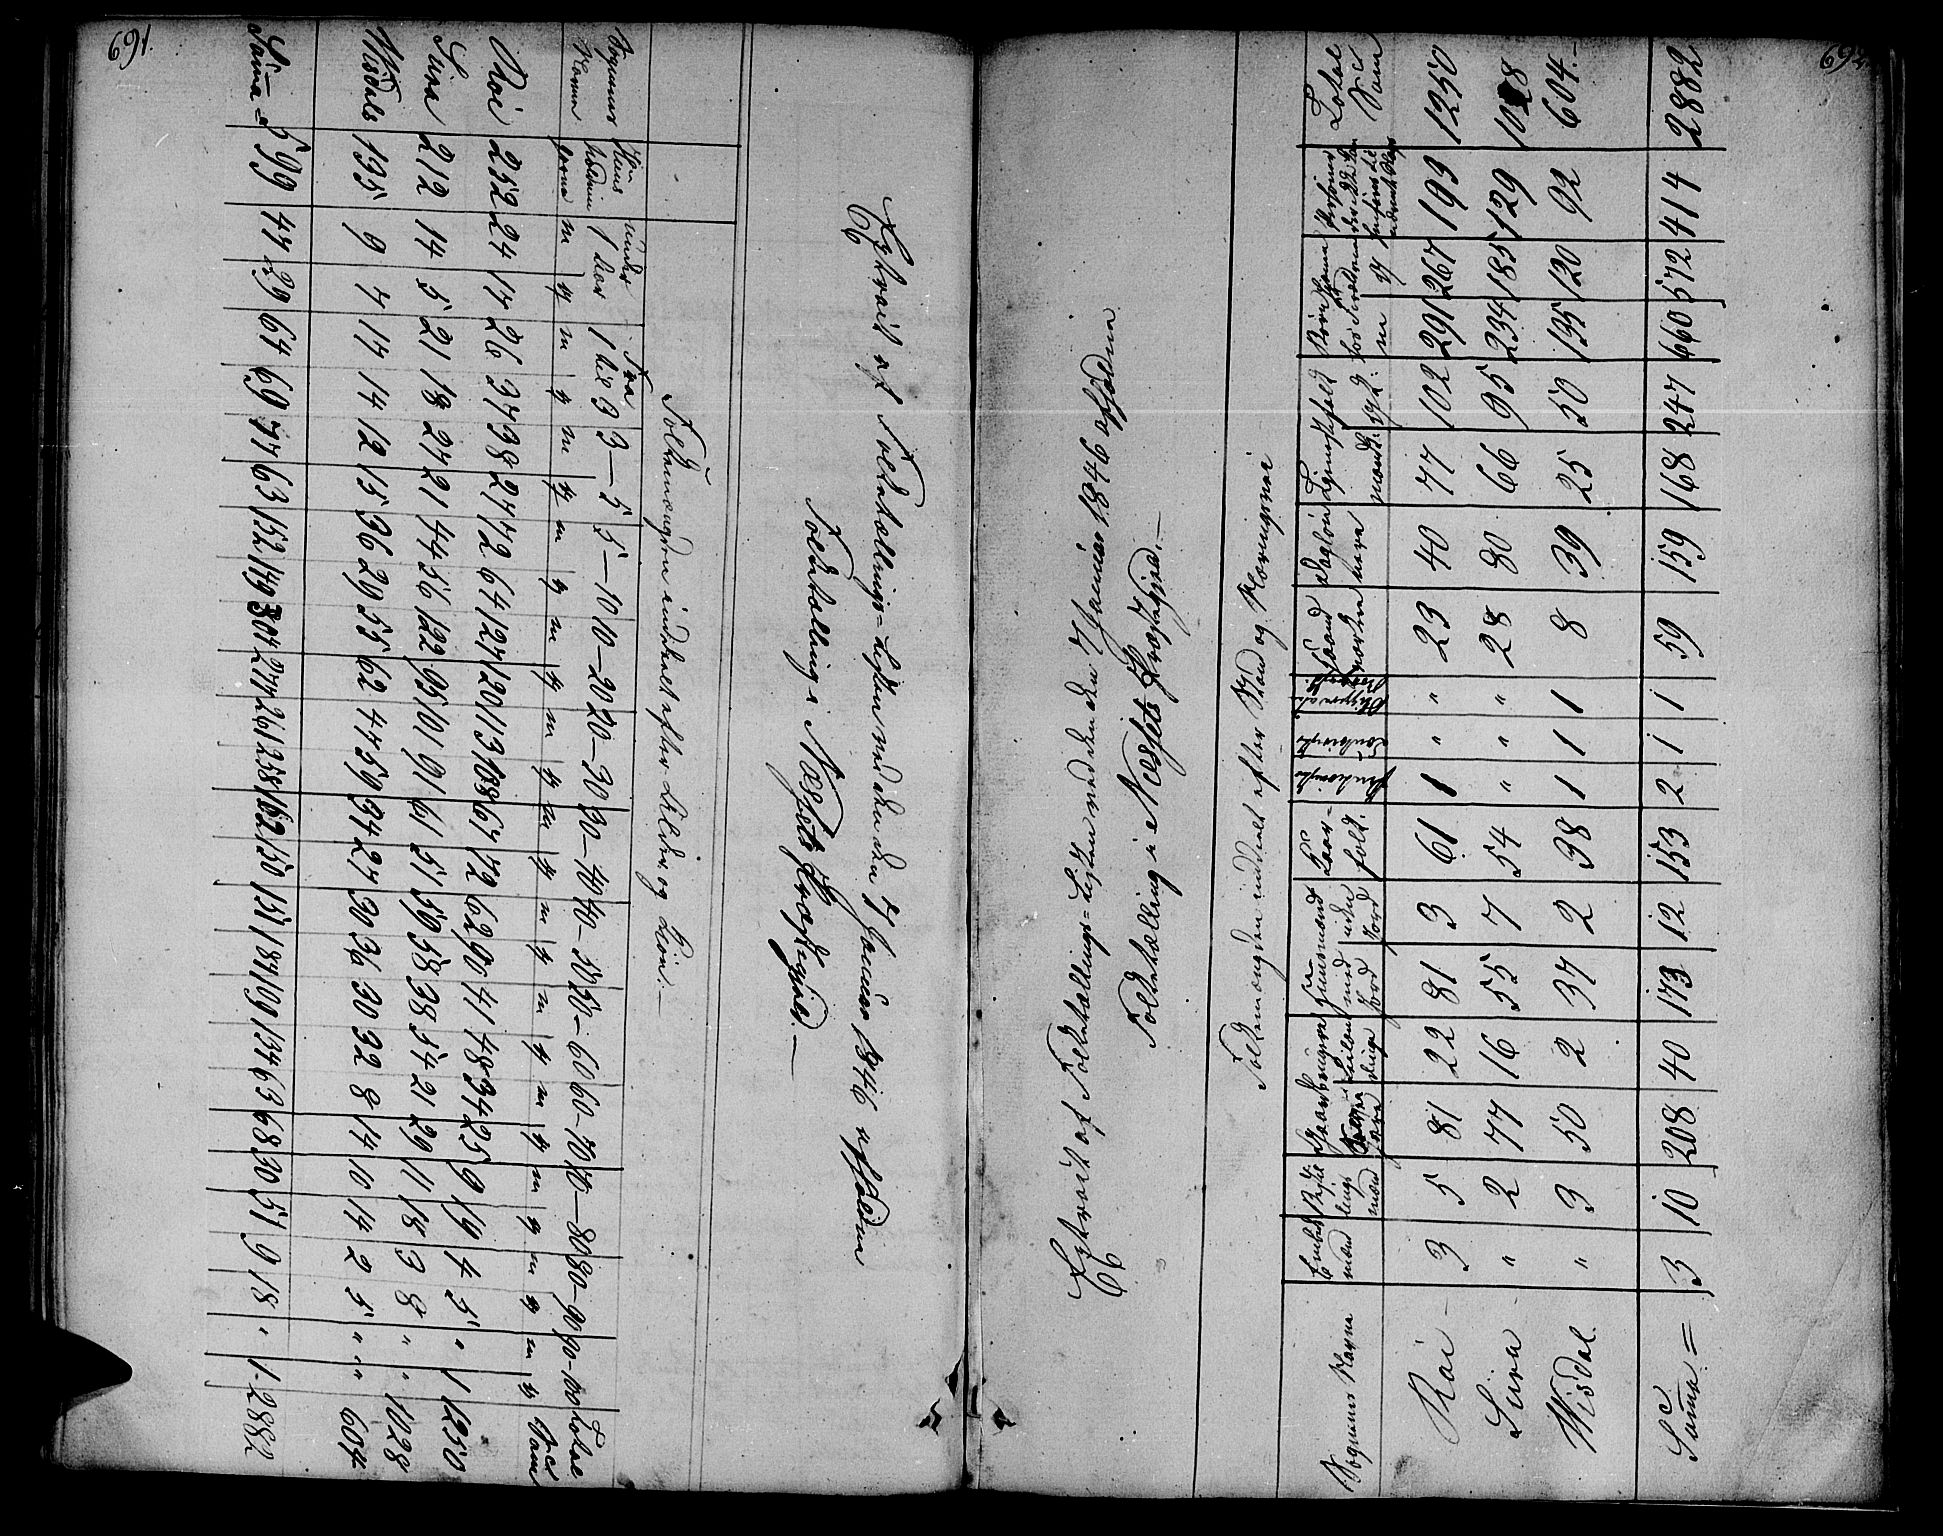 691.
Extrait af Folketællings=Listen ved den den 7 Januar 1846 afholdne
Folketælling i Næssets Præstegjeld.—
Folkemængden inddeelt efter Alder og Kjön.—
Sognenes Navne
under 1 Aar | Fra 1 til 3 | 3—5 | 5—10 | 10—20 | 20—30 | 30—40 | 40—50 | 50—60 | 60—70 | 70—80 | 80—90 | 90—100 | Total Sum
m | q | m | q | m | q | m | q | m | q | m | q | m | q | m | q | m | q | m | q | m | q | m | q | m | q
Röe 252 24 17 26 37 38 27 72 64 127 120 113 108 67 72 62 90 41 48 34 25 9 19 4 5 " 1 1250
Sira 212 14 5 21 18 27 21 44 56 122 95 101 91 61 51 59 58 38 54 21 29 11 18 3 8 " " 1028
Wisdal 135 9 7 17 14 12 15 36 29 55 62 47 59 34 27 30 36 30 32 8 14 10 14 2 5 " " 604
Suma = 599 47 29 64 69 77 63 152 149 304 277 261 258 162 150 151 184 109 134 63 68 30 51 9 18 " 1 2882
692.
Extrait af Folketællings=Listen ved den den 7 Januar 1846 afholdne
Folketælling i Næssets Præstegjeld.—
Folkemængden inddeelt efter Stand og Næringsvei
Sognenes Navne | Embedsmænd | Gaardbrugere | Huusmænd med Jord | uden Jord | Kaarfolk. | Haandværkere | Daglönnere | Tjenestefolk mandk: qvk: | Börn hjemme hos Forældrene m q | Total Sum
Röe 3 5 81 22 81 3 61 1 " " 23 40 77 102 291 267 193 1250
Sira " 2 77 16 55 7 54 " " " 28 80 66 95 234 185 129 1028
Wisdal. " 3 50 2 37 2 38 1 1 1 8 39 25 50 135 120 92 604.
Suma = 3 10 208 40 173 12 153 2 1 1 59 159 168 247 660 572 414 2882